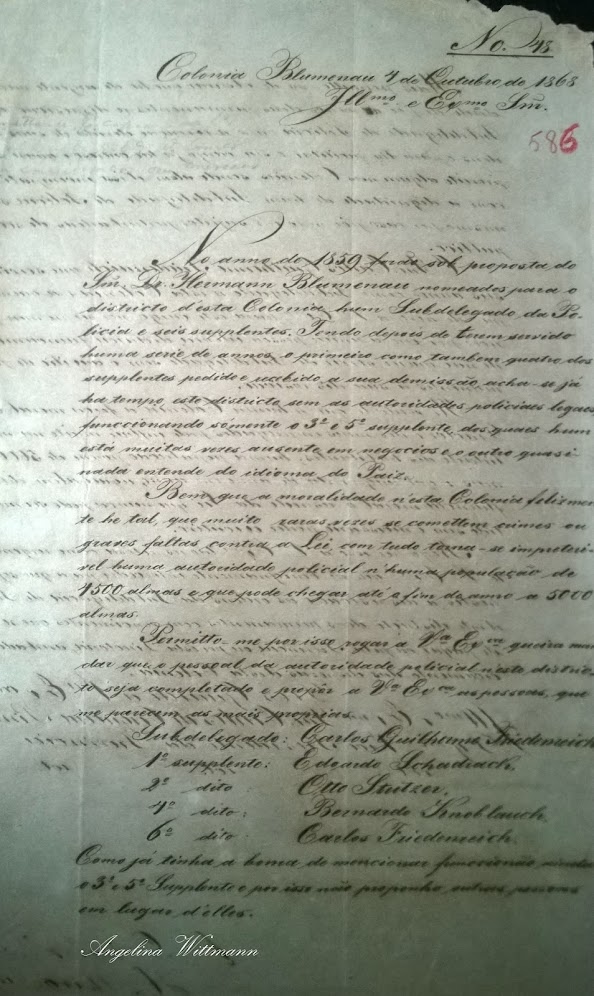 No. 48.
Colonia Blumenau 4 de Outubro de 1868
Illmo e Exmo Snr.
586
No anno de 1859 forão sob proposta do
Snr. Dr. Hermann Blumenau nomeados para o
districto d'esta Colonia hum Subdelegado da Po-
licia e seis supplentes. Tendo depois de terem servido
huma serie de annos o primeiro como tambem quatro dos
supplentes pedido e recebido a sua demissão acha-se já
ha tempo este districto sem as autoridades policiaes legaes
funccionando sómente o 3º e 5º supplente, dos quaes hum
está muitas vezes ausente em negocios e o outro quasi
nada entende do idioma do Paiz.
Bem que a moralidade n'esta Colonia felizmen-
te he tal, que muito raras vezes se comettem crimes ou
graves faltas contra a Lei com tudo torna-se impreteri-
vel huma autoridade policial n'huma população de
4500 almas e que pode chegar até o fim do anno a 5000
almas.
Permitto-me por isso rogar a Vª Exª queira man-
dar que o pessoal da autoridade policial neste distric-
to seja completado e propôr a Vª Exª as pessoas, que
me parecem as mais proprias.
Subdelegado: Carlos Guilherme Friedenreich
1º supplente: Edoardo Schadrach.
2º dito: Otto Stutzer.
4º dito: Bernardo Knoblauch
6º dito: Carlos Friedenreich
Como já tinha a honra de mencionar funccionão ainda
o 3º e 5º Supplente e por isso não proponho outras pessoas
em lugar d'elles.
Angelina Wittmann